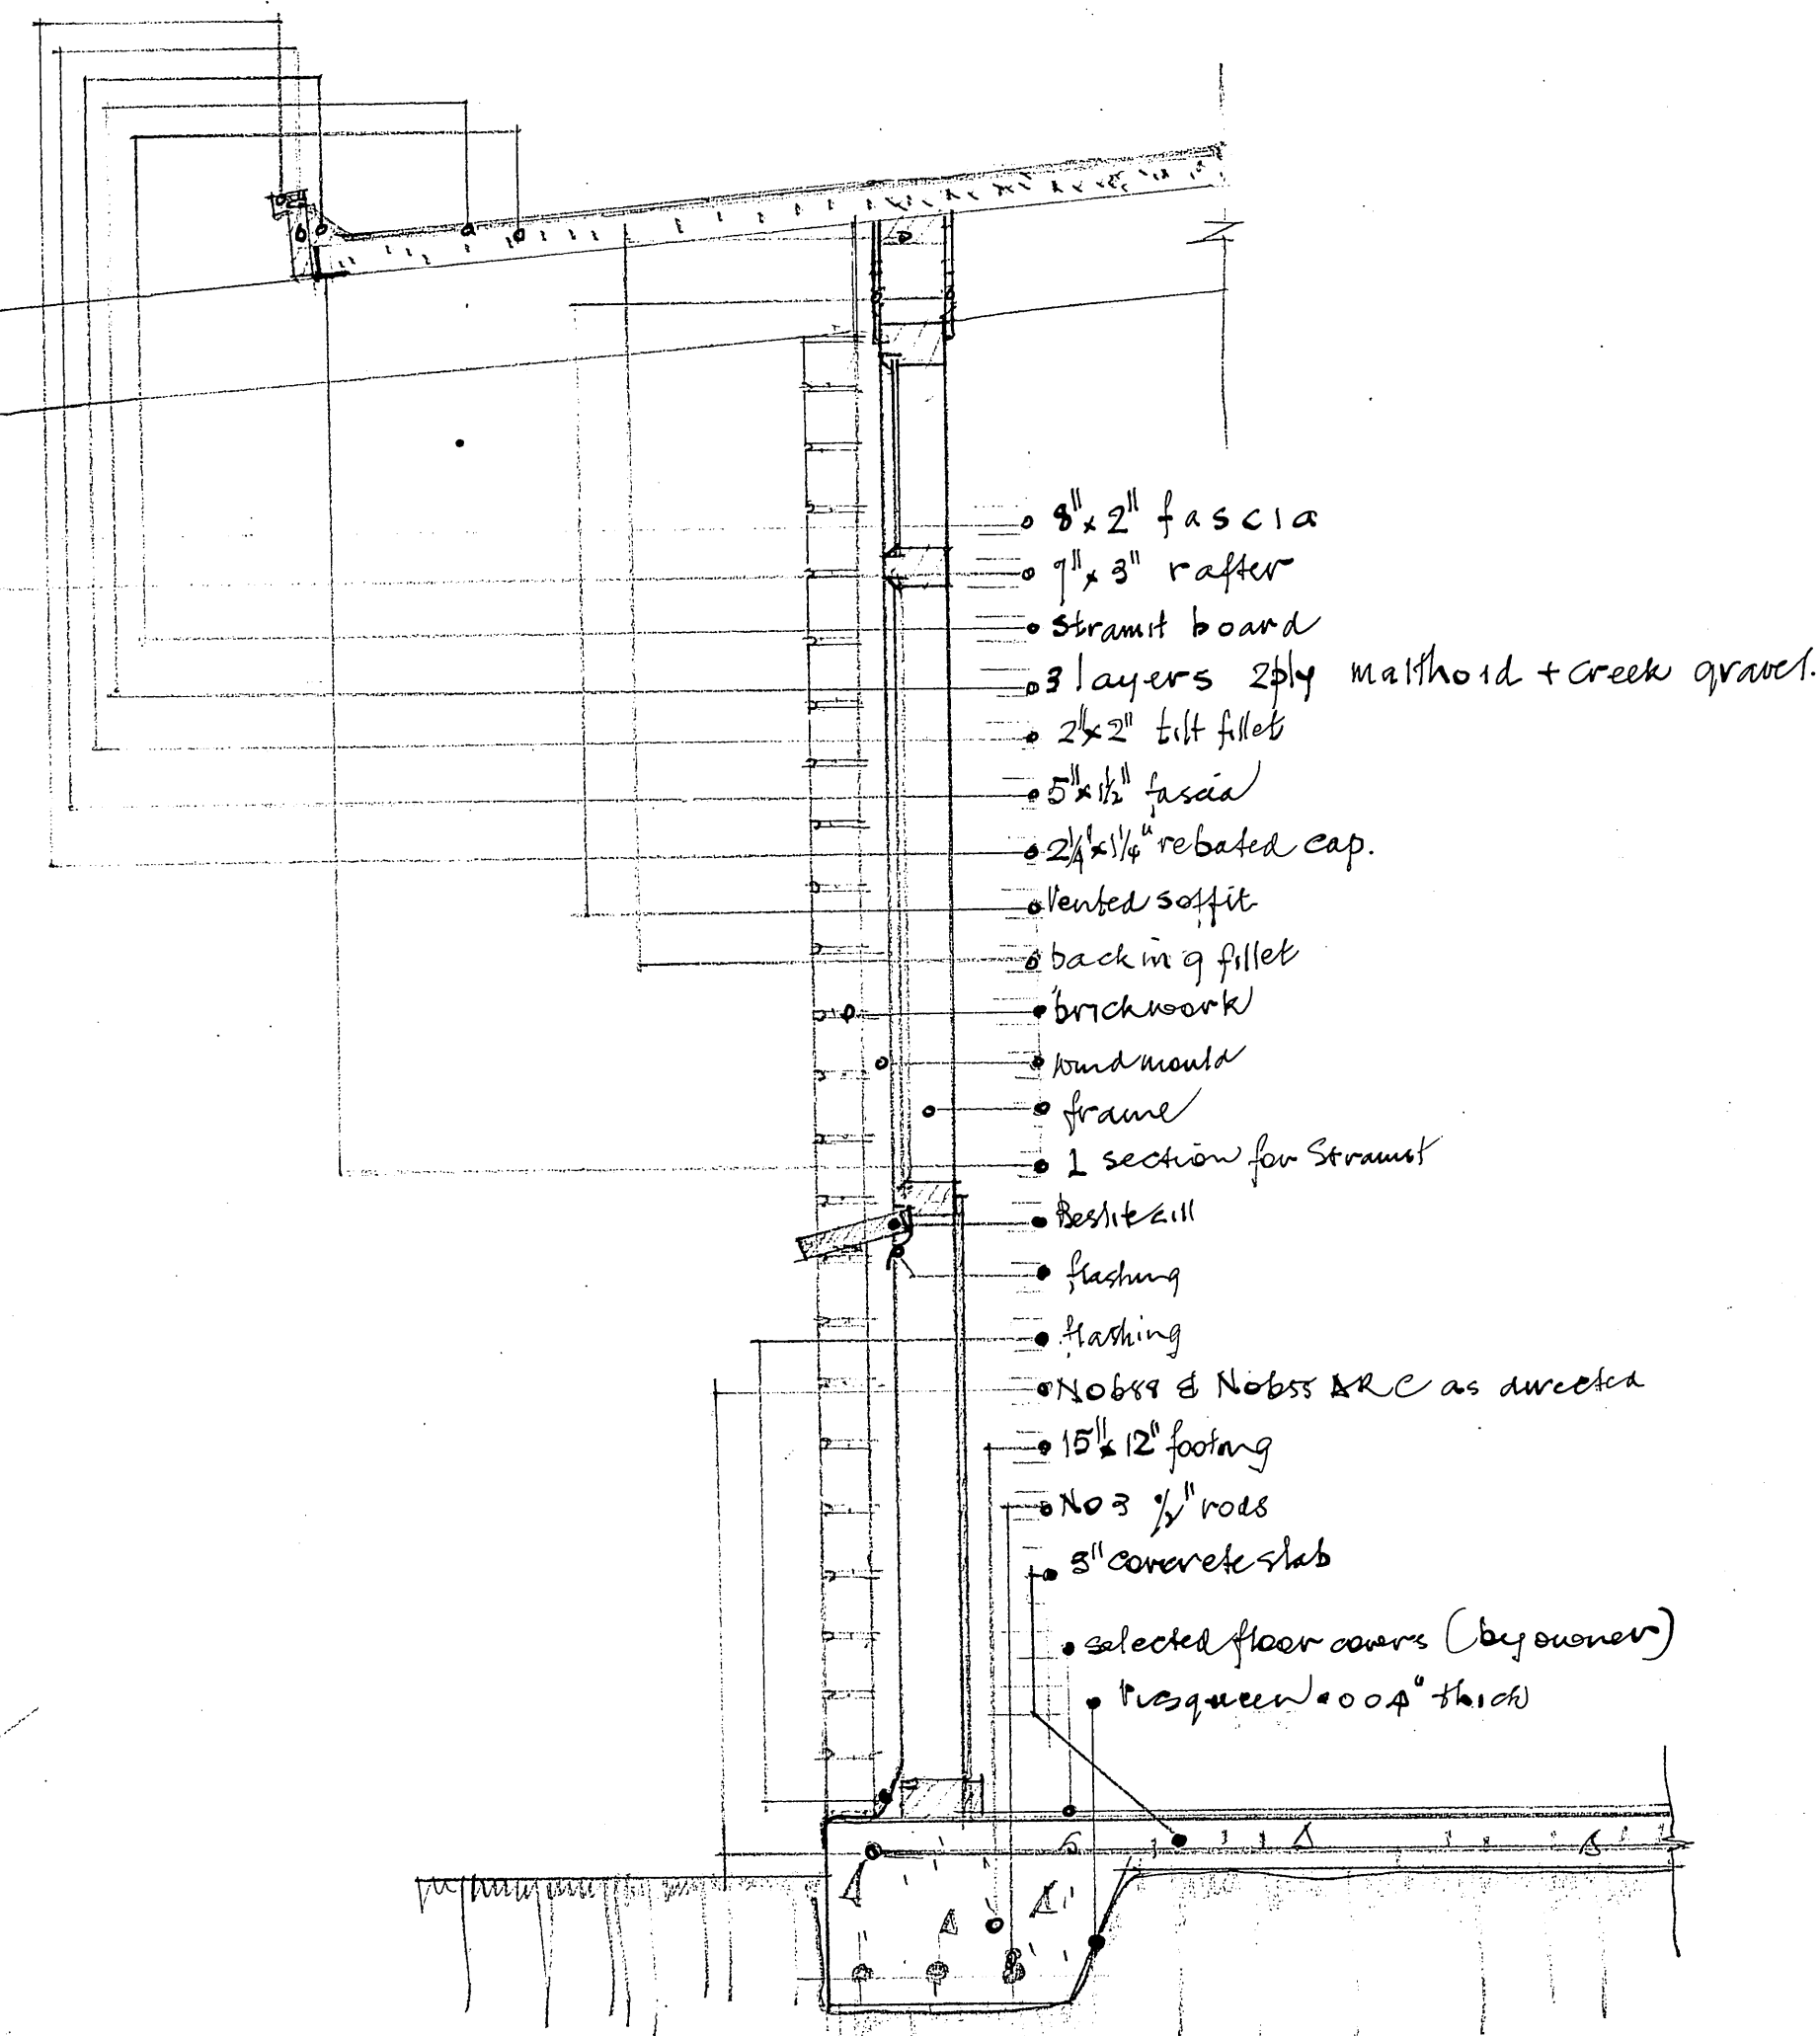 8"x 2" fascia
9"x 3" rafter
stramit board
3 layers 2ply malthoid + creek gravel.
2"x2" tilt fillet
5"x 1½" fascia
2¼"x1¼" rebated cap.
Vented soffit
backing fillet
brickwork
wind mould
frame
1 section for Stramit
Beslite sill
flashing
flashing
No 689 & No 655 ARC as directed
15"x 12" footing
No 3 ½" rods
3" concrete slab
selected floor covers (by owner)
Visqueen .004" thick